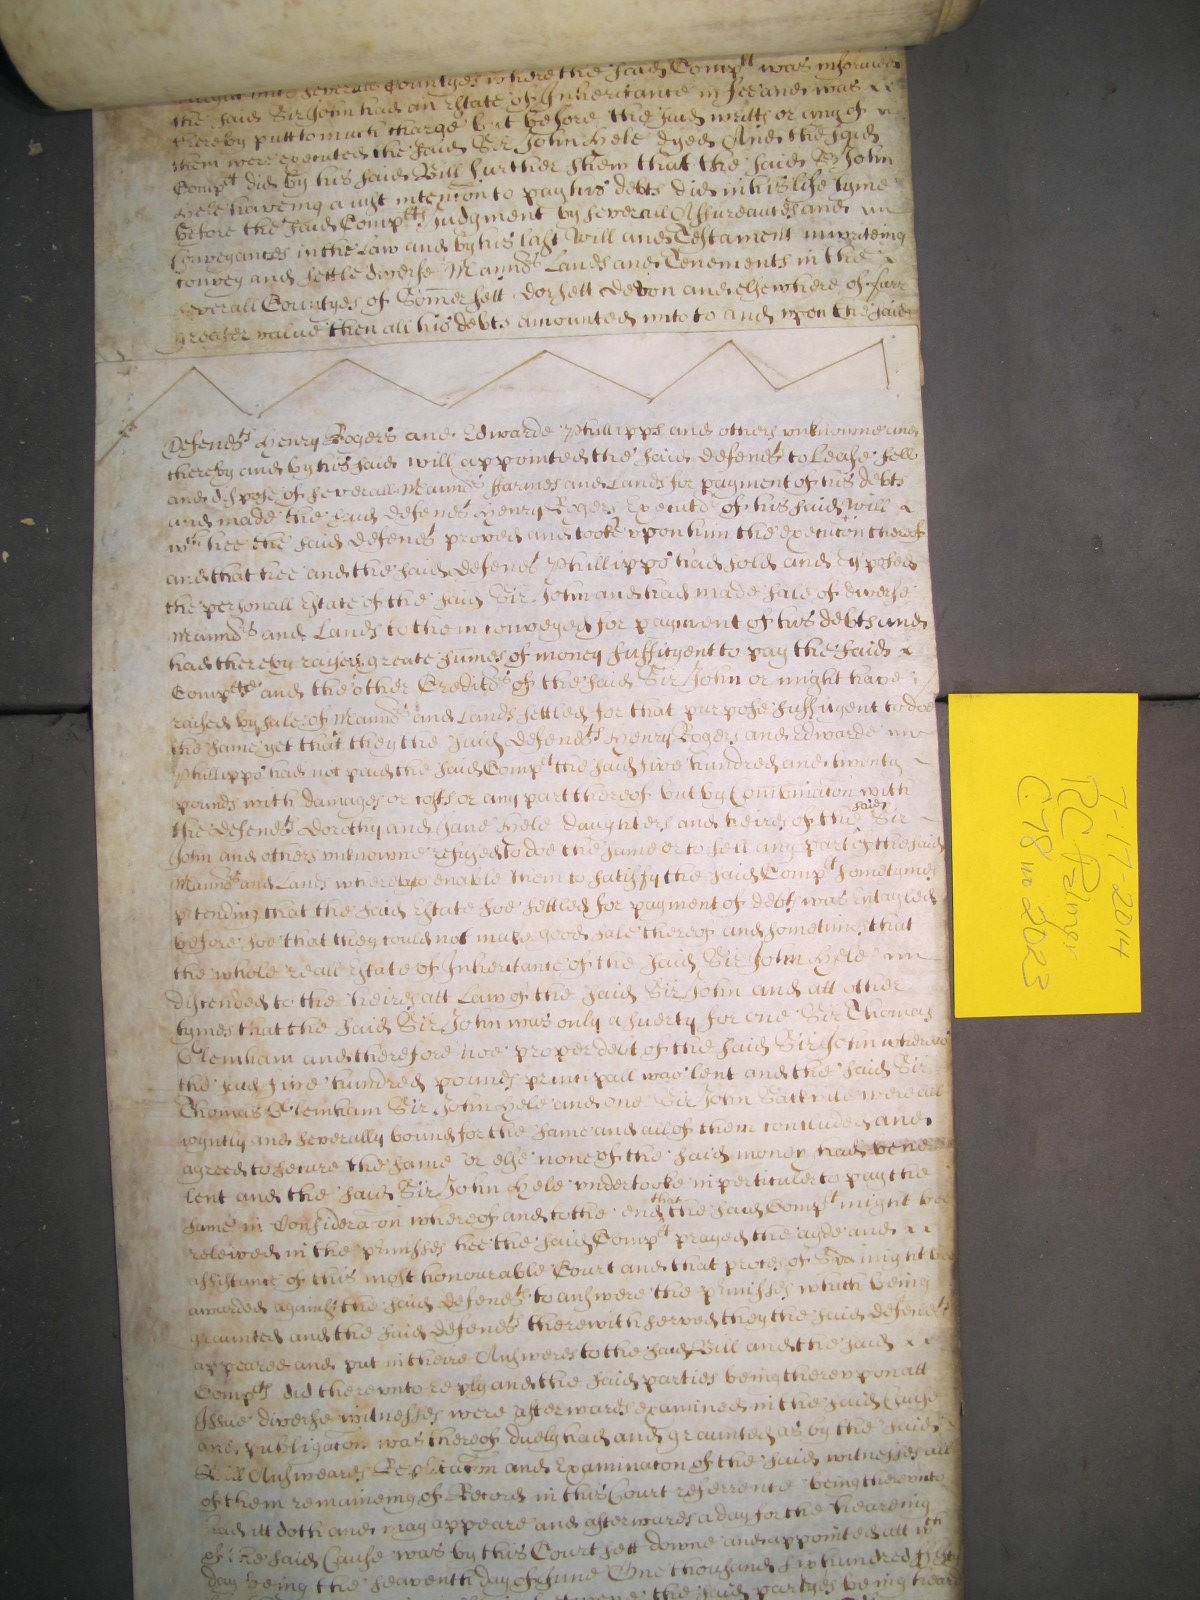 severall Countyes where the said Compt was informed
the said Sir John had an estate of Inheritance in fee and was
thereby putt to much charge but before the said writts or any of
them were executed the said Sir John Hele dyed And the said
Complt did by his said Bill further shew that the said Sr John
Hele haveing a just intencon to pay his debts did in his life tyme
before the said Complts Judgment by severall Assurances and
Conveyances in the Law and by his last Will and Testament in writeing
convey and settle diverse Mannors Lands and Tenements in the
severall Countyes of Somersett Dorsett Devon and elsewhere of farr
greater value then all his debts amounted unto to and upon the said
Defendts Henry Rogers and Edwarde Phillipps and others unknowne and
thereby and by his said will appointed the said Defendts to Lease sell
and dispose of severall Mannors Farmes and Lands for payment of his debts
and made the said Defendt Henry Rogers Executor of his said will
wch hee the said Defendt proved and tooke upon him the execucon thereof
and that hee and the said Defendt Phillipps had sold and disposed
the personall estate of the said Sir John and had made sale of diverse
Mannors and Lands to them conveyed for payment of his debts and
had thereby raysed greate sumes of money suffityent to pay the said
Complte and the other Creditors of the said Sir John or might have
raised by sale of Mannors and Lands settled for that purpose suffitgent to doe
the same yet that they the said Defendts Henry Rogers and Edwarde
Phillipps had not paid the said Compt the said five hundred and twenty
pounds with damages or costs or any part thereof but by Combinacon with
the Defendts Dorothy and Jane Hele daughters and heires of the said Sir
John and others unknowne refused to doe the same or to sell any part of the said
Mannors and Lands whereby to enable them to satisfy the said Compt sometymes
ptending that the said estate soe settled for payment of debts was entayled
before soe that they could not make good sale thereof and sometimes that
the whole reall estate of Inheritance of the said Sir John Hele
discended to the heires att Law of the said Sir John and att other
tymes that the said Sir John was only a suerty for one Sir Thomas
Glemham and therefore noe proper debt of the said Sir John whereas
the said five hundred pounds principall was lent and the said Sir
Thomas Glemham Sir John Hele and one Sir John were all
joyntly and severally bound for the same and all of them concluded and
agreed to secure the same or else none of the said money had bene
lent and the said Sir John Hele undertooke in perticuler to pay the
same in Consideracon whereof and to the end that the said Compt might bee
releived in the premisses hee the said Compt prayed the ayde and
assistance of this most honourable Court and that proces of Spa might bee
awarded against the said Defendts to answere the premisses which being
graunted and the said Defendts therewith served they the said Defendts
appeared and put in theire Answeres to the said Bill and the said
Complts did thereunto reply and the said parties being thereupon att
Issue diverse witnesses were afterwards examined in the said Cause
and publigacon was thereof duely had and graunted as by the said
Bill Answeares Replicacon and Examinacon of the said witnesses all
of them remaineing of Record in this Court referrence being thereunto
had itt doth and may appeare and afterwards a day for the heareing
of the said Cause was by this Court sett downe and appointed att wch
day being the seaventh day of June One thousand six hundred
the said partyes being heard
7-17-2014
RC Palmer
C78 no 2023